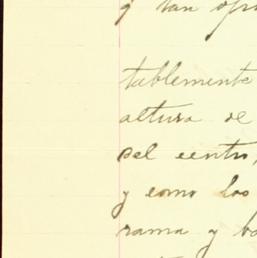 y tan
tablemente
altura de
del centro,
y como los
rama y